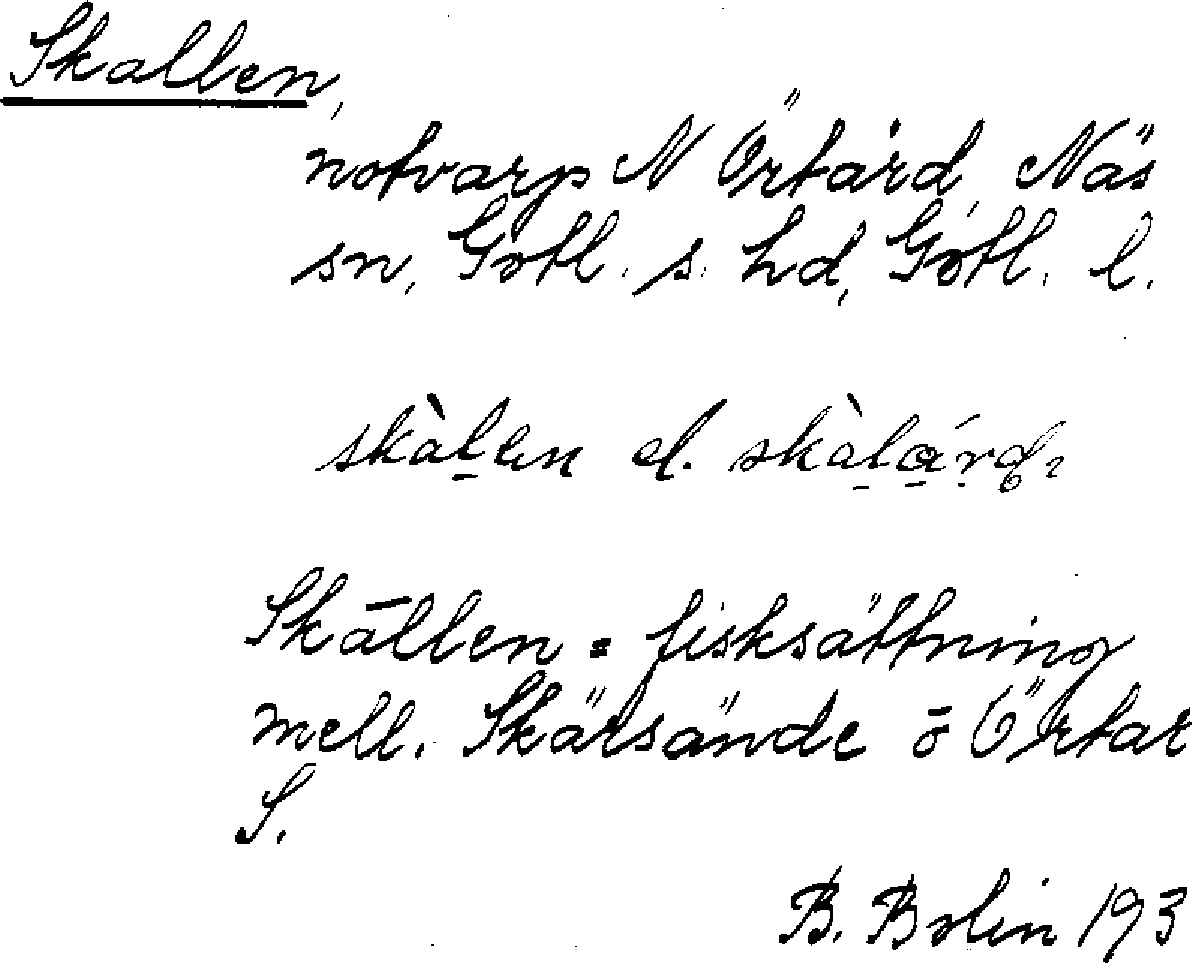 Skallen,
notvarp N Örtård, Näs
sn, Gotl. s. hd, Gotl. l.
skàḷen el.
Skällen = fisksättning
mell. Skärsände ō Örtar
S.
B. Bolin 193